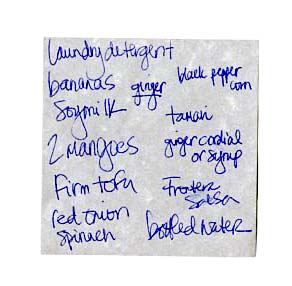 laundry detergent
bananas
ginger
black pepper
corn
Soymilk
tamari
2 mangoes
ginger cordial
or syrup
Firm tofu
Frontera
Salsa
red onion
spinach
bottled water